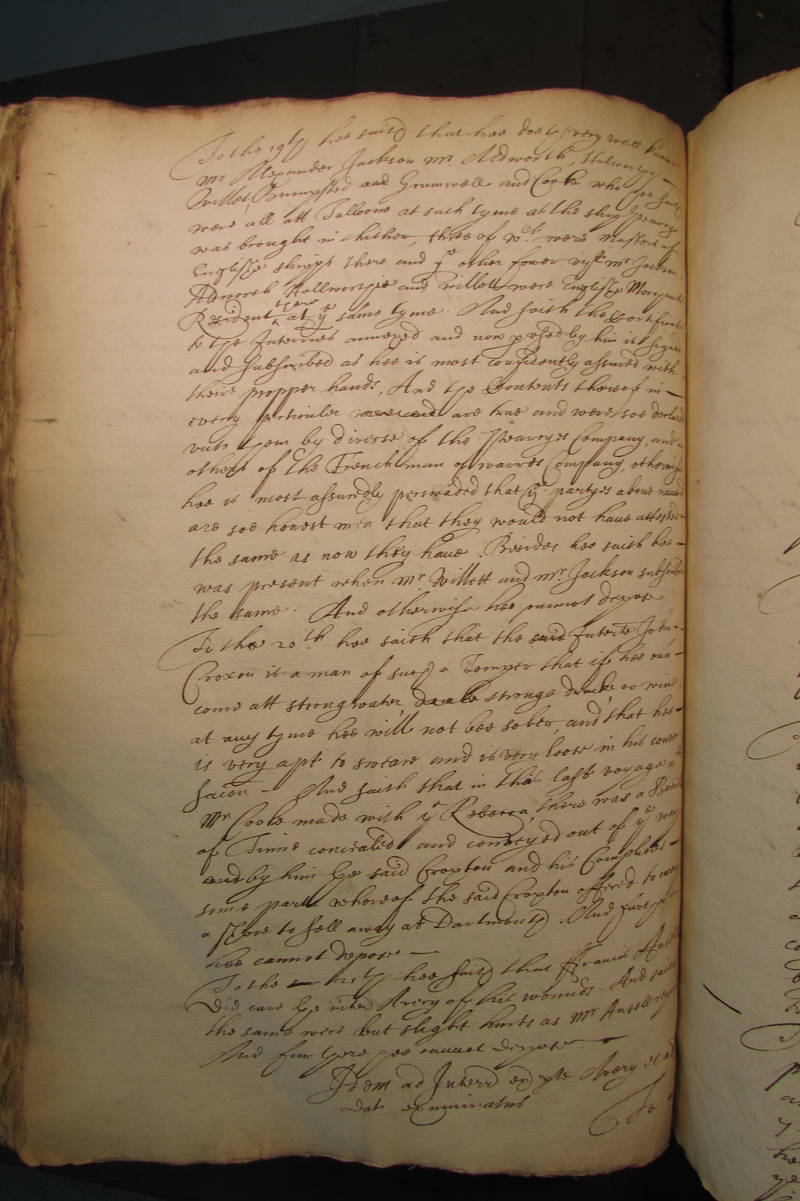 To the 19th hee saith that hee doeth very well knowe
Mr Alexander Jackson Mr Aldworth, Hallworthy
Willet, Bumpsted and Grumwell and Cooke who hee saith
were all att Tolloone at such tyme as the ship Pearce
was brought in thither, three of wch were Masters of
English shipps there and ye other fower vizt Mr Jackson
Aldworth Hollworthye and Willett were English Merchants
Resident there at ye same tyme. And saith the Certificate
to the Interries annexed and now shewed by him is signed
and subscribed as hee is most confidently assured with
theire propper hands, And the Contents thereof in
every perticuler are true and were soe declared
unto them by diverse of the Pearces Company, and
others of the French man of warres Company, otherwise
hee is most assuredly perswaded that ye partyes above named
are soe honest men that they would not have attested
the same as now they have. Besides hee saith hee
was present when Mr Willett and Mr Jackson subscribed
the same. And otherwise hee cannot depose
To the 20th hee saith that the said Interte John
Croxon is a man of such a Temper that if hee can
come att strong water, stronge drinke or wine
at any tyme hee will not bee sober, and that hee
is very apt to sweare and is very loose in his conver
sacon - And saith that in the last voyage
Mr Cooke made with ye Rebecca, there was a
of Tinne concealed and conveyed out of ye way
by him the said Croxton and his Complices
some parte whereof the said Croxton offered to
a store to sell away at Dartmouth. And further
hee cannot depose
To the hee saith that ffrancis Ansell
did cure the interr Avery of his wounds. And saith
the same were but slight hurts as Mr Ansell
And further hee cannot depose
Idem ad Interr ex pte Avery et
dat examinatus
To